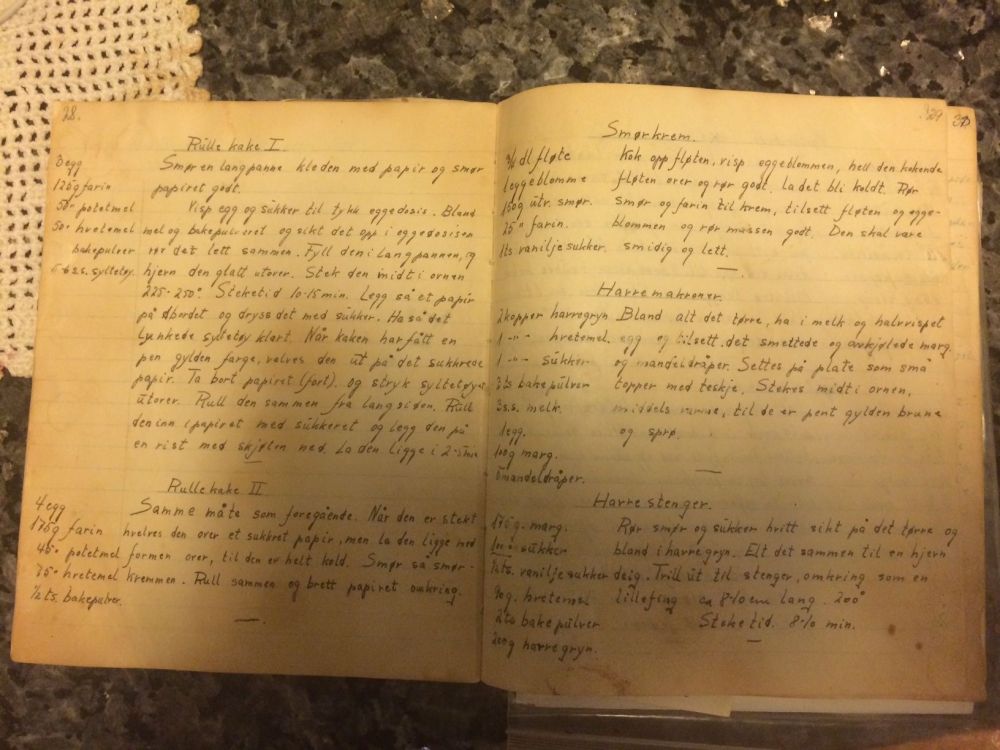 28.
Rullekake I.
3 egg Smør en langpanne kle den med papir og smør
125g farin papiret godt.
50" potetmel Visp egg og sukker til tykk eggedosis. Bland
50" hvetemel mel og bakepulveret og sikt det opp i eggedosisen
bakepulver rør det lett sammen. Fyll den i langpannen, og
5-6 s.s. syltetøy. hjern den glatt utover. Stek den midt i ovnen
225-250° Steketid 10-15 min. Legg så et papir
på bordet og dryss det med sukker. Ha så det
lunkede syltetøy klart. Når kaken har fått en
pen gylden farge, velves den ut på det sukkrede
papir. Ta bort papiret (fort). og stryk syltetøyet
utover. Rull den sammen fra langsiden. Rull
den inn i papiret med sukkeret og legg den på
en rist med skjøten ned. La den ligge i 2-5 min
Rullekake II
4 egg Samme måte som foregående. Når den er stekt
175g farin hvelves den over et sukkret papir, men la den ligge med
45" potetmel formen over, til den er helt kold. Smør så smør-
75" hvetemel kremmen. Rull sammen og brett papiret omkring.
1/2 ts. bakepulver.
29
30
Smørkrem.
3/4 dl fløte Kok opp fløten, visp eggeblommen, hell den kokende
1 eggeblomme fløten over og rør godt. la det bli koldt. Rør
150g utv. smør. Smør og farin til krem, tilsett fløten og egge-
25" farin. blommen og rør massen godt. Den skal være
1 ts vanilje sukker. smidig og lett.
Havremakroner.
2 kopper havregryn Bland alt det tørre, ha i melk og halvvispet
1 -"- hvetemel. egg og tilsett det smeltede og avkjølede marg.
1 -"- sukker og mandeldråper. Settes på plate som små
2 ts bakepulver topper med teskje. Stekes midt i ovnen,
3 s.s. melk. middels varme, til de er pent gylden brune
1 egg. og sprø.
100g marg.
5 mandeldråper.
Havrestenger.
175 g. marg. Rør smør og sukker hvitt sikt på det tørre og
100 " sukker bland i havregryn. Elt det sammen til en hjern
1/2 ts. vanilje sukker deig. Trill ut til stenger, omkring som en
90g. hvetemel lillefing ca 8-10 cm lang. 200°
2 ts bakepulver Steketid. 8-10 min.
200g havregryn.